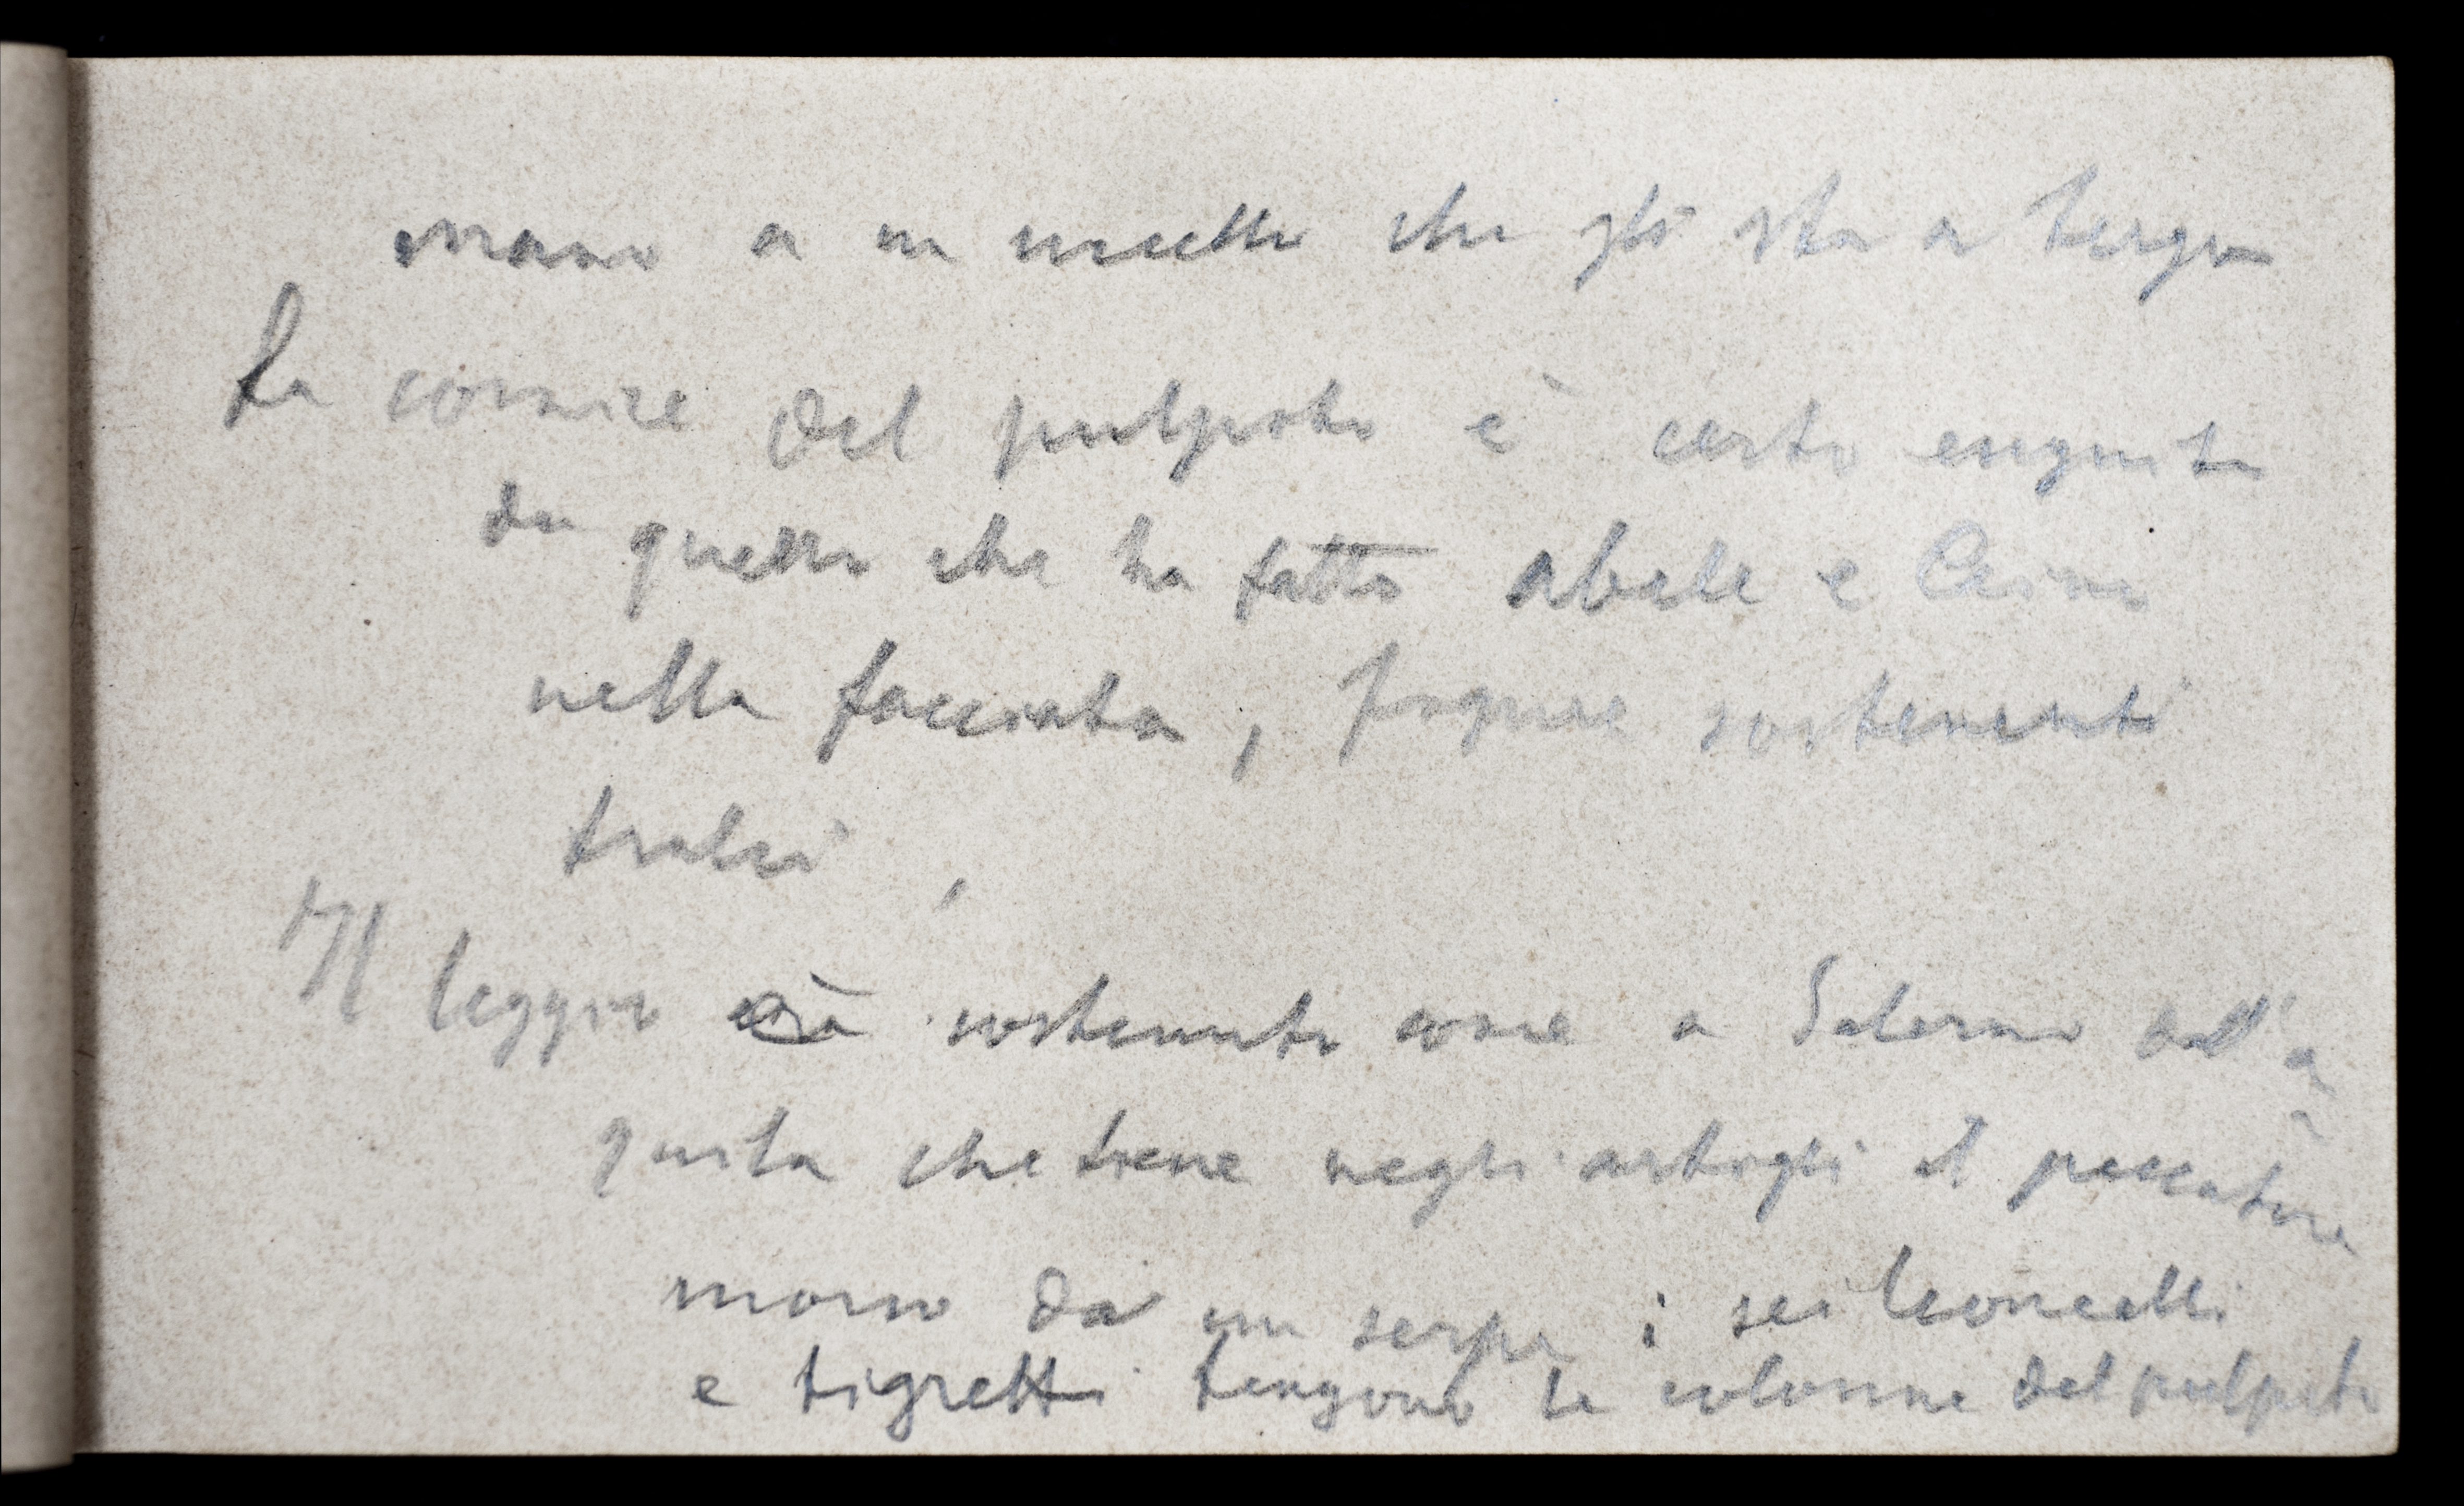 mano a un uccello che gli sta a tergo
La cornice del pulpito è certo eseguita
da quello che ha fatto Abele e Caino
nella facciata, figure sostenenti
tralci,
Il leggio è sostenuto come a Salerno dall'a-
quila che tiene negli artigli il peccatore
morso da un serpe; sei leoncelli
e tigretti tengono le colonne del pulpito